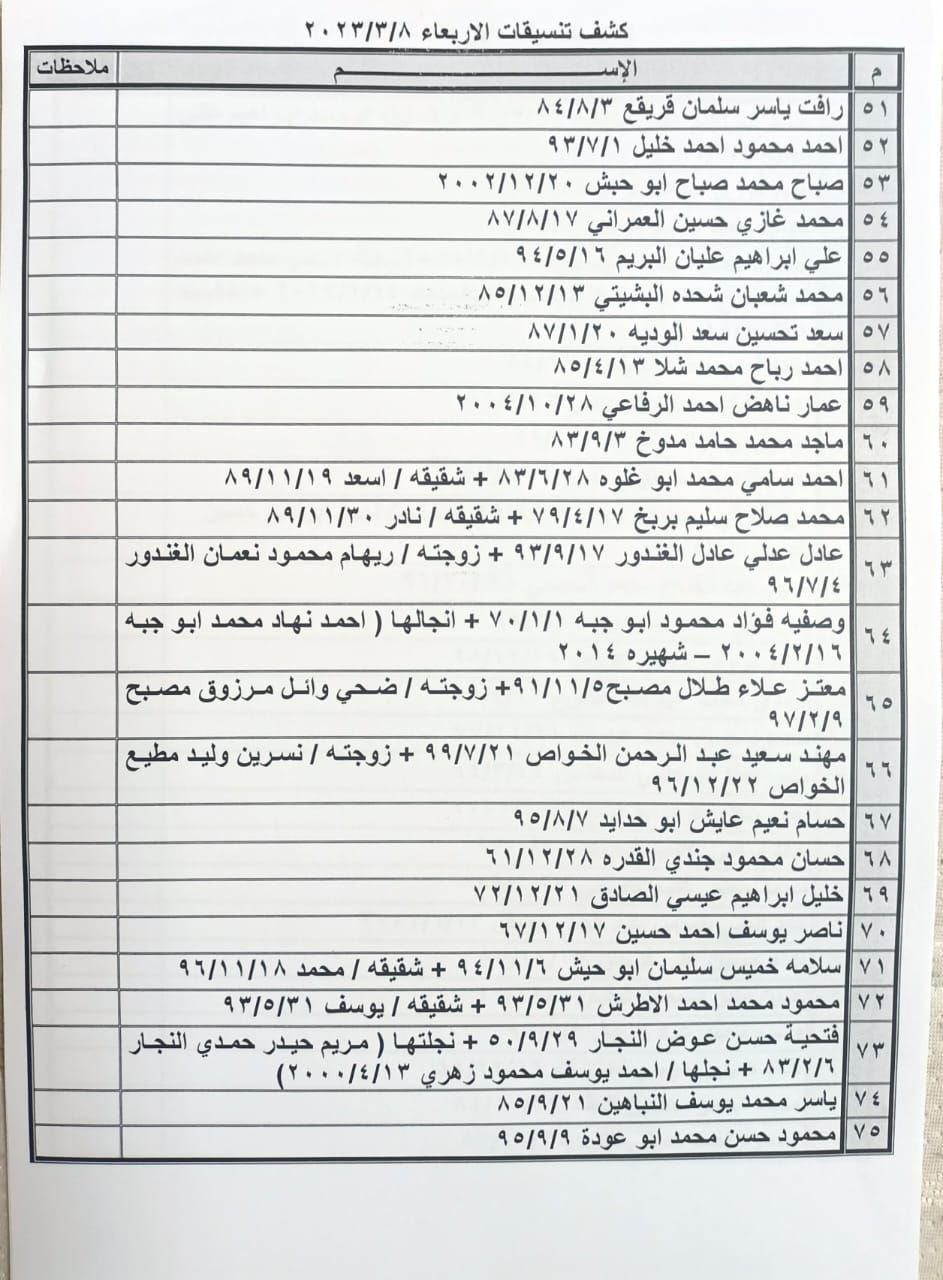 كشف تنسيقات الاربعاء ٢٠٢٣/٣/٨
م الإســـــــــــــــم ملاحظات
٥١ رافت ياسر سلمان قريقع ٨٤/٨/٣
٥٢ احمد محمود احمد خليل ٩٣/٧/١
٥٣ صباح محمد صباح ابو حبش ٢٠٠٢/١٢/٢٠
٥٤ محمد غازي حسين العمراني ٨٧/٨/١٧
٥٥ علي ابراهيم عليان البريم ٩٤/٥/١٦
٥٦ محمد شعبان شحده البشيتي ٨٥/١٢/١٣
٥٧ سعد تحسين سعد الوديه ٨٧/١/٢٠
٥٨ احمد رباح محمد شلا ٨٥/٤/١٣
٥٩ عمار ناهض احمد الرفاعي ٢٠٠٤/١٠/٢٨
٦٠ ماجد محمد حامد مدوخ ٨٣/٩/٣
٦١ احمد سامي محمد ابو غلوه ٨٣/٦/٢٨ + شقيقه / اسعد ٨٩/١١/١٩
٦٢ محمد صلاح سليم بربخ ٧٩/٤/١٧ + شقيقه / نادر ٨٩/١١/٣٠
٦٣ عادل عدلي عادل الغندور ٩٣/٩/١٧ + زوجته / ريهام محمود نعمان الغندور
٩٦/٧/٤
٦٤ وصفيه فؤاد محمود ابو جبه ٧٠/١/١ + انجالها ( احمد نهاد محمد ابو جبه
٢٠٠٤/٢/١٦ – شهيره ٢٠١٤
٦٥ معتز علاء طلال مصبح٩١/١١/٥+ زوجته / ضحي وائل مرزوق مصبح
٩٧/٢/٩
٦٦ مهند سعيد عبد الرحمن الخواص ٩٩/٧/٢١ + زوجته / نسرين وليد مطيع
الخواص ٩٦/١٢/٢٢
٦٧ حسام نعيم عايش ابو حدايد ٩٥/٨/٧
٦٨ حسان محمود جندي القدره ٦١/١٢/٢٨
٦٩ خليل ابراهيم عيسي الصادق ٧٢/١٢/٢١
٧٠ ناصر يوسف احمد حسين ٦٧/١٢/١٧
٧١ سلامه خميس سليمان ابو حيش ٩٤/١١/٦ + شقيقه / محمد ٩٦/١١/١٨
٧٢ محمود محمد احمد الاطرش ٩٣/٥/٣١ + شقيقه / يوسف ٩٣/٥/٣١
٧٣ فتحية حسن عوض النجار ٥٠/٩/٢٩ + نجلتها ( مريم حيدر حمدي النجار
٨٣/٢/٦ + نجلها / احمد يوسف محمود زهري ٢٠٠٠/٤/١٣)
٧٤ ياسر محمد يوسف النباهين ٨٥/٩/٢١
٧٥ محمود حسن محمد ابو عودة ٩٥/٩/٩